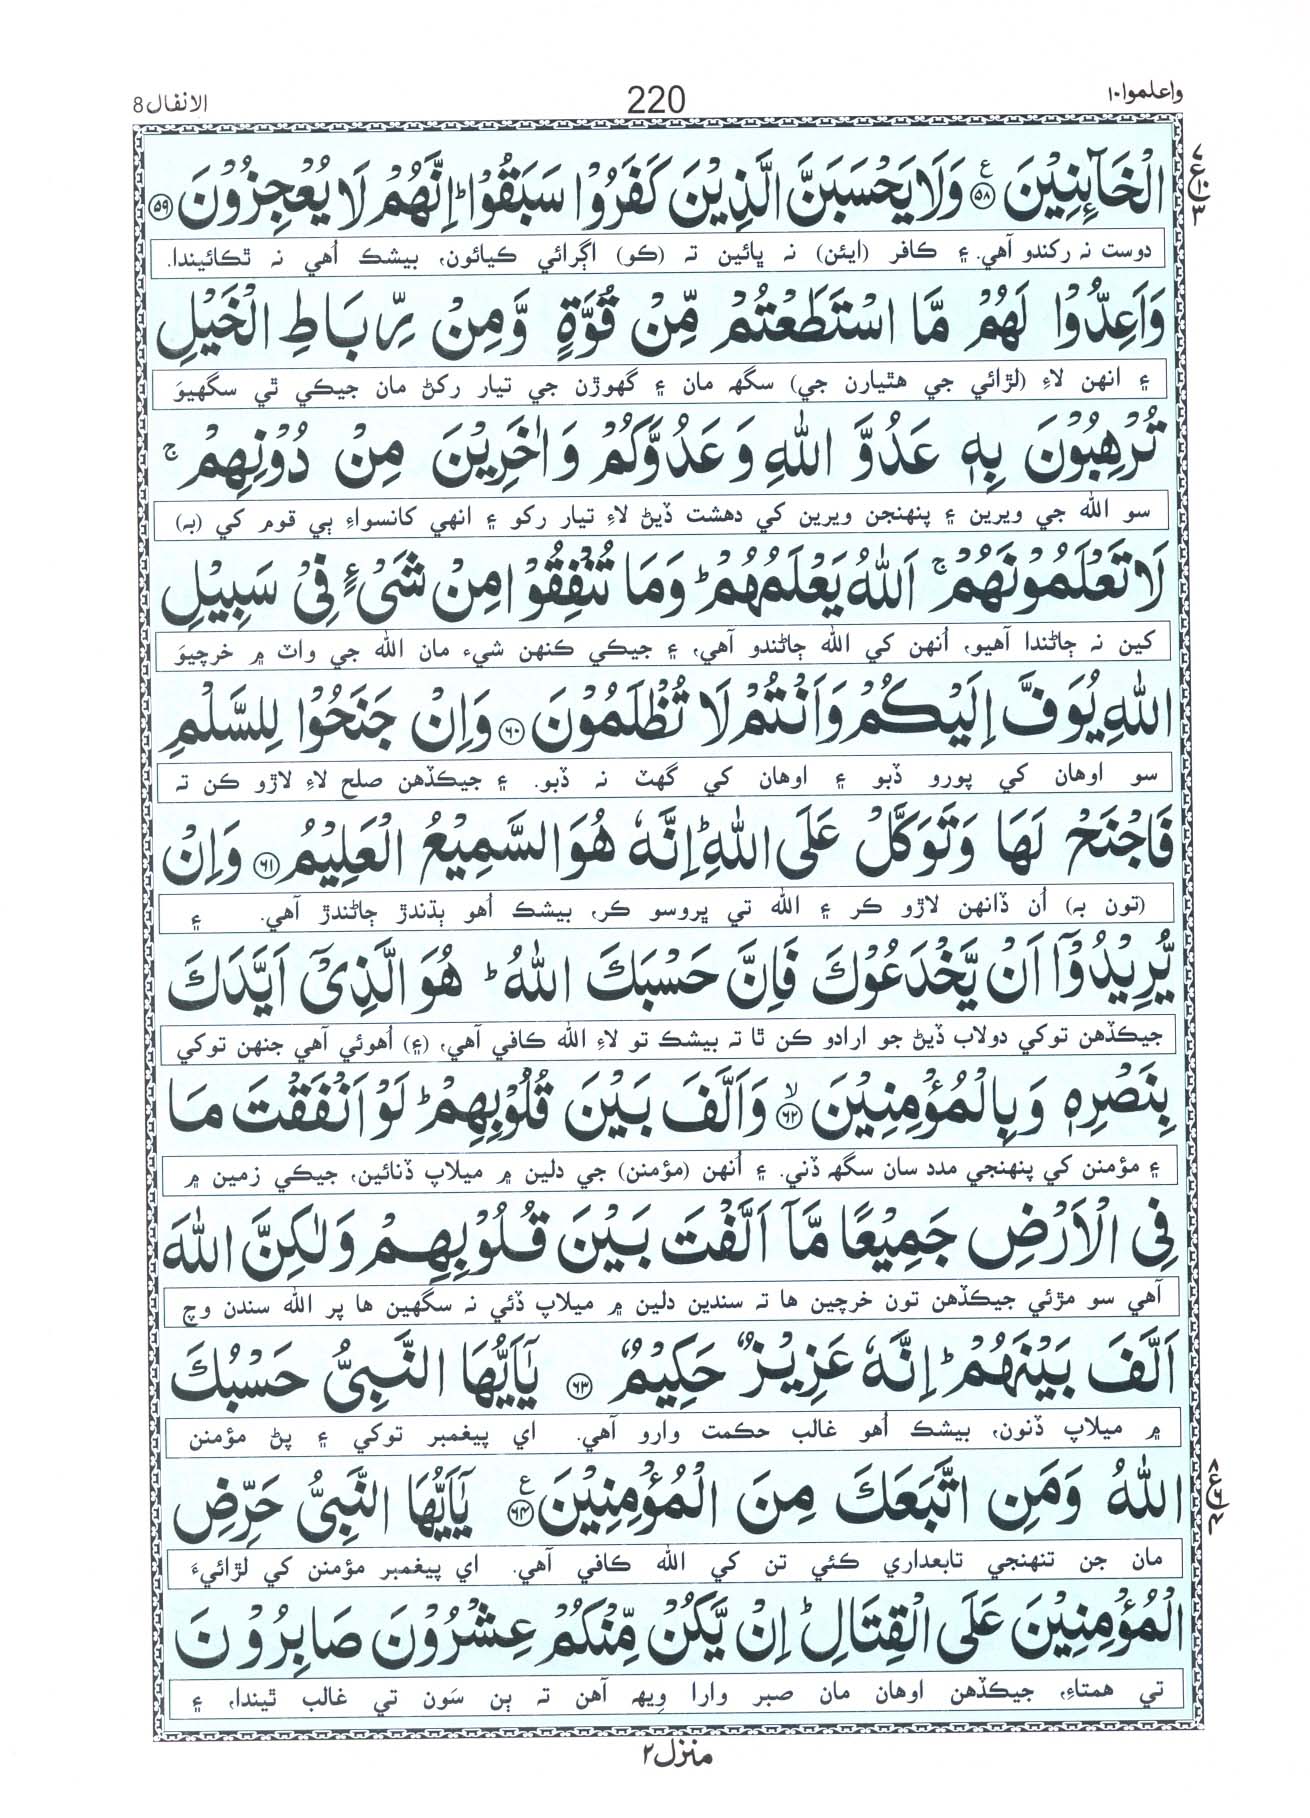 واعلموا۱۰ 220 الانفال 8
الْخَآئِنِيْنَ ۝۵۸ وَلَا يَحْسَبَنَّ الَّذِيْنَ كَفَرُوْا سَبَقُوْا ؕ اِنَّهُمْ لَا يُعْجِزُوْنَ ۝۵۹
دوست نہ رکندو آهي. ۽ ڪافر (ايئن) نہ ڀائين تہ (ڪو) اڳرائي ڪيائون، بيشڪ اُهي نہ ٿڪائيندا.
وَاَعِدُّوْا لَهُمْ مَّا اسْتَطَعْتُمْ مِّنْ قُوَّةٍ وَّمِنْ رِّبَاطِ الْخَيْلِ
۽ انهن لاءِ (لڙائي جي هٿيارن جي) سگهہ مان ۽ گهوڙن جي تيار رکڻ مان جيڪي ٿي سگهيوَ
تُرْهِبُوْنَ بِهٖ عَدُوَّ اللّٰهِ وَعَدُوَّكُمْ وَاٰخَرِيْنَ مِنْ دُوْنِهِمْ ۚ
سو الله جي ويرين ۽ پنهنجن ويرين کي دهشت ڏيڻ لاءِ تيار رکو ۽ انهي کانسواءِ ٻي قوم کي (بہ)
لَا تَعْلَمُوْنَهُمْ ۚ اَللّٰهُ يَعْلَمُهُمْ ؕ وَمَا تُنْفِقُوْا مِنْ شَیْءٍ فِیْ سَبِيْلِ
کين نہ ڄاڻندا آهيو، اُنهن کي الله ڄاڻندو آهي، ۽ جيڪي ڪنهن شيء مان الله جي واٽ ۾ خرچيوَ
اللّٰهِ يُوَفَّ اِلَيْكُمْ وَاَنْتُمْ لَا تُظْلَمُوْنَ ۝۶۰ وَاِنْ جَنَحُوْا لِلسَّلْمِ
سو اوهان کي پورو ڏبو ۽ اوهان کي گهٽ نہ ڏبو. ۽ جيڪڏهن صلح لاءِ لاڙو ڪن تہ
فَاجْنَحْ لَهَا وَتَوَكَّلْ عَلَى اللّٰهِ ؕ اِنَّهٗ هُوَ السَّمِيْعُ الْعَلِيْمُ ۝۶۱ وَاِنْ
(تون بہ) اُن ڏانهن لاڙو ڪر ۽ الله تي ڀروسو ڪر، بيشڪ اُهو ٻڌندڙ ڄاڻندڙ آهي. ۽
يُّرِيْدُوْۤا اَنْ يَّخْدَعُوْكَ فَاِنَّ حَسْبَكَ اللّٰهُ ؕ هُوَ الَّذِیْۤ اَيَّدَكَ
جيڪڏهن توکي دولاب ڏيڻ جو ارادو ڪن ٿا تہ بيشڪ تو لاءِ الله ڪافي آهي، (۽) اُهوئي آهي جنهن توکي
بِنَصْرِهٖ وَبِالْمُؤْمِنِيْنَ ۙ۝۶۲ وَاَلَّفَ بَيْنَ قُلُوْبِهِمْ ؕ لَوْ اَنْفَقْتَ مَا
۽ مؤمنن کي پنهنجي مدد سان سگهہ ڏني. ۽ اُنهن (مؤمنن) جي دلين ۾ ميلاپ ڏنائين، جيڪي زمين ۾
فِی الْاَرْضِ جَمِيْعًا مَّاۤ اَلَّفْتَ بَيْنَ قُلُوْبِهِمْ وَلٰكِنَّ اللّٰهَ
آهي سو مڙئي جيڪڏهن تون خرچين ها تہ سندين دلين ۾ ميلاپ ڏئي نہ سگهين ها پر الله سندن وچ
اَلَّفَ بَيْنَهُمْ ؕ اِنَّهٗ عَزِيْزٌ حَكِيْمٌ ۝۶۳ يٰۤاَيُّهَا النَّبِیُّ حَسْبُكَ
۾ ميلاپ ڏنون، بيشڪ اُهو غالب حڪمت وارو آهي. اي پيغمبر توکي ۽ پڻ مؤمنن
اللّٰهُ وَمَنِ اتَّبَعَكَ مِنَ الْمُؤْمِنِيْنَ ۝۶۴ يٰۤاَيُّهَا النَّبِیُّ حَرِّضِ
مان جن تنهنجي تابعداري ڪئي تن کي الله ڪافي آهي. اي پيغمبر مؤمنن کي لڙائيءَ
الْمُؤْمِنِيْنَ عَلَى الْقِتَالِ ؕ اِنْ يَّكُنْ مِّنْكُمْ عِشْرُوْنَ صَابِرُوْنَ
تي همتاءِ، جيڪڏهن اوهان مان صبر وارا ويهہ آهن تہ ٻن سَون تي غالب ٿيندا، ۽
منزل۲